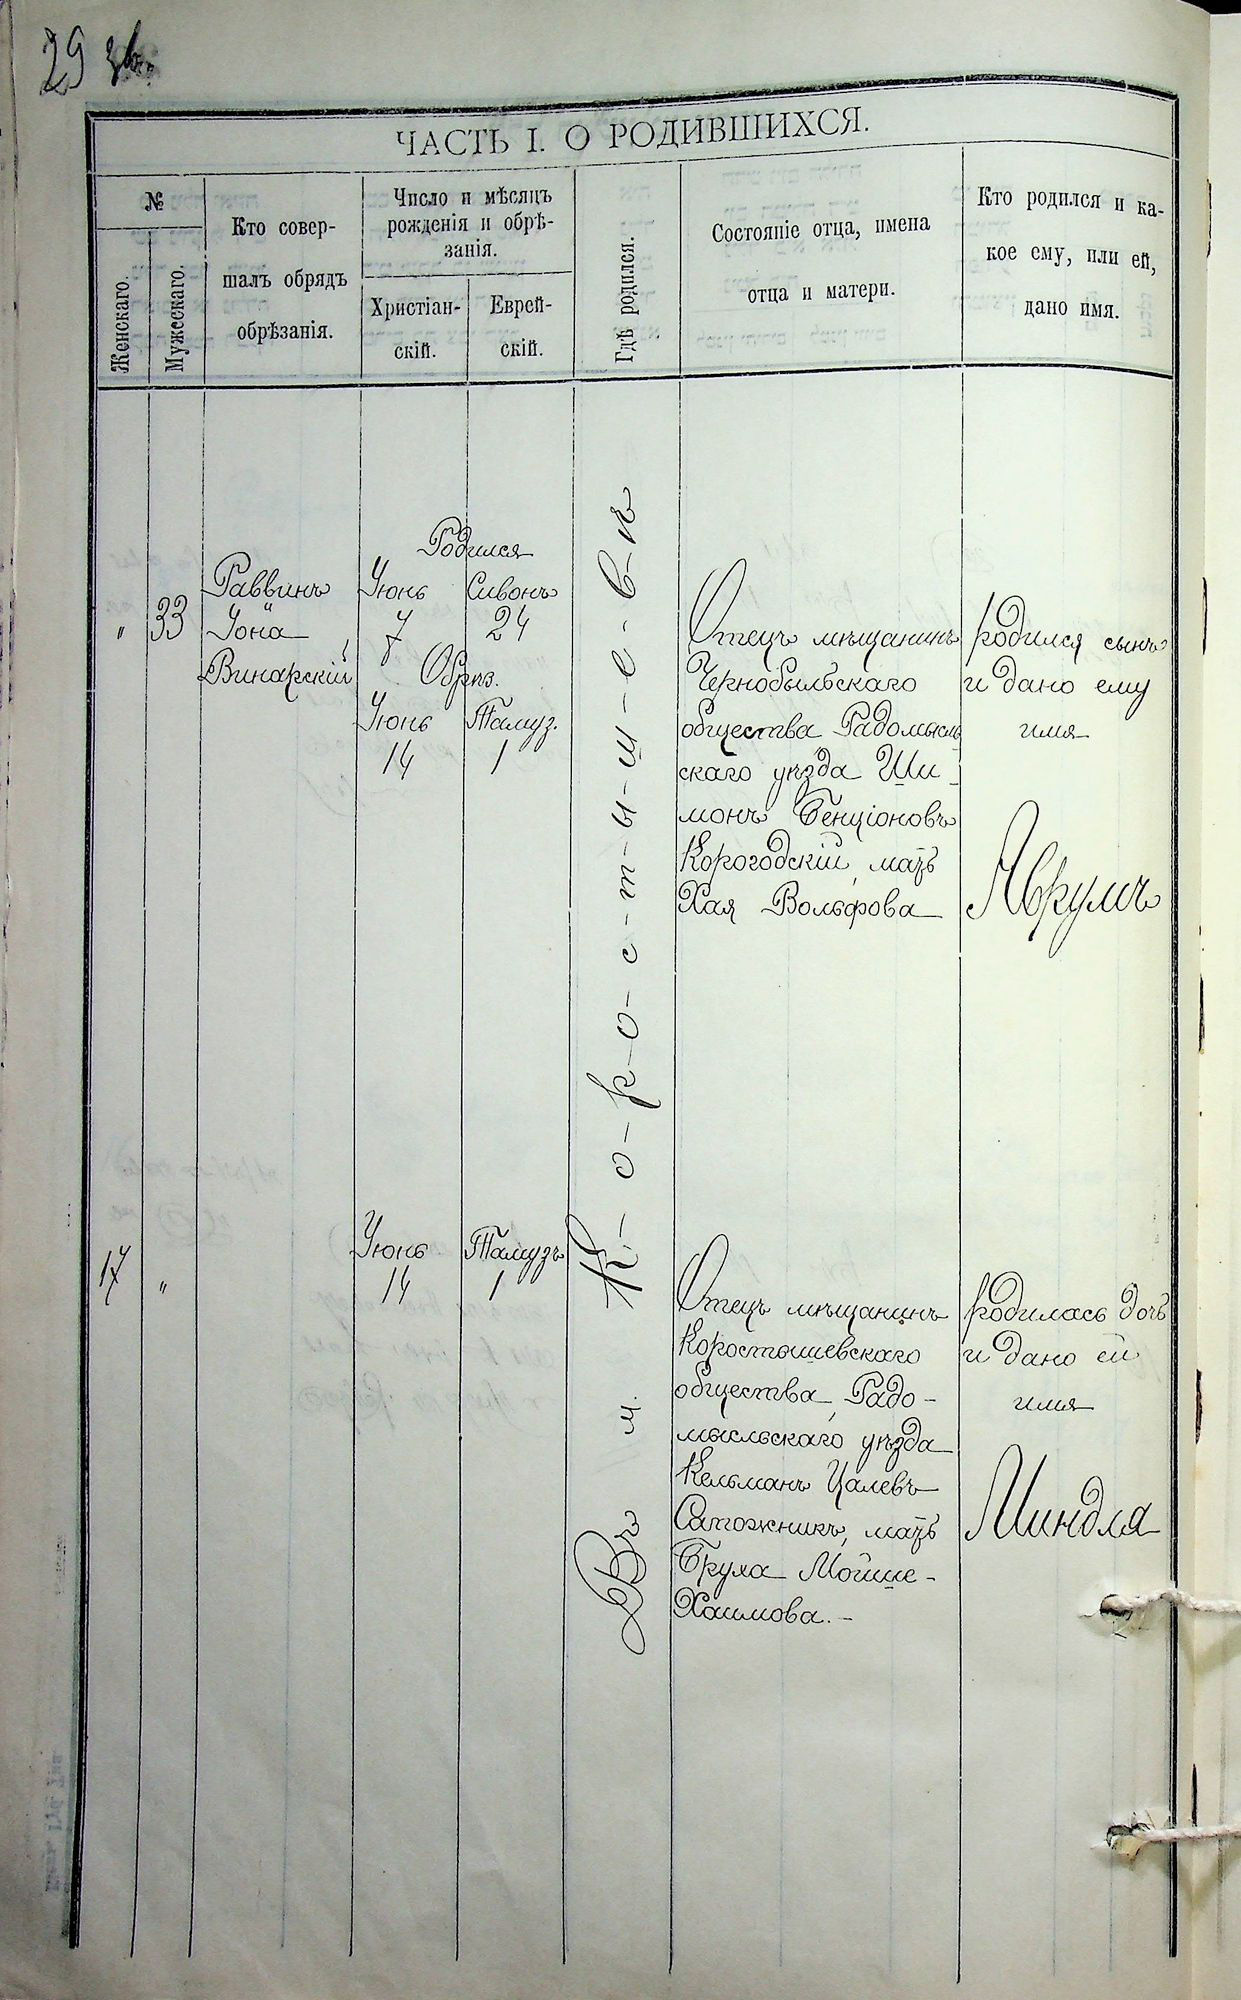 29 зв.
ЧАСТЬ I. О РОДИВШИХСЯ.
№
Женскаго.
Мужескаго.
Кто совер-
шалъ обрядъ
обрѣзанія.
Число и мѣсяцъ
рожденія и обрѣ-
занія.
Христіан-
скій.
Еврей-
скій.
Гдѣ родился.
Состояніе отца, имена
отца и матери.
Кто родился и ка-
кое ему, или ей,
дано имя.
" 33
Раввинъ
Іона
Винарскій
Родился
Іюнь Сивонъ
7 24
Обрѣз.
Іюнь Тамуз.
14 1
Въ м. К-о-р-о-с-т-ы-ш-е-в-ѣ
Отецъ мѣщанинъ
Чернобыльскаго
общества Радомысль
скаго уѣзда Ши-
монъ Бенціоновъ
Корогодскій, мать
Хая Вольфова
родился сынъ
и дано ему
имя
Аврумъ
17 "
Іюнь Тамузъ
14 1
Отецъ мѣщанинъ
Коростышевскаго
общества, Радо-
мысльскаго уѣзда
Кельманъ Цалевъ
Сапожникъ, мать
Бруха Мойше-
Хаимова.-
родилась дочь
и дано ей
имя
Миндля